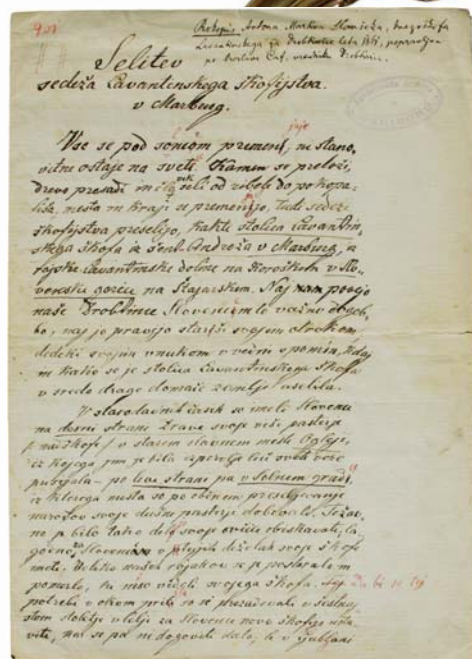 901
Rokopis Antona Martina Slomšeka, knezoškofa
Lavantinskega za Drobtince leta 1861, popravljen
po Oroslavu Caf, uredniku Drobtinic.
Selitev
sedeža Lavantinskega škofijstva
v Marburg.
Vse se pod soncom premeni, ne stano-
vitno ostaje na sveti. Kamen se preloži,
drevo presadi in človek seli od zibele do pokopa-
liša, mesta in kraji se premenijo, tudi sedeži
škofijstva preselijo, kakti stolica Lavantin-
skega škofa iz šent-Andreža v Marburg, iz
rajske Lavantinske doline na Koroškem v Slo-
venske gorice na Štajarskem. Naj nam povejo
naše Drobtince Slovencam to važno dogod-
bo, naj jo pravijo starši svojim otrokom
dedeki svojim vnukom v večni spomin, kdaj
in kako se je stolica Lavantinskega škofa
v sredo drage domače zemlje vselila.
V starodavnih časih so imeli Slovenci
na desni strani Drave svoje više pasterje
(nadškofe) v starem slavnem mesti Ogleje,
iz kojega jim je bila izpervlje luč svete vere
prisjala – po levi strani pa v Solnem gradi,
iz kterega mesta so po občnem preseljevanje
narodov svoje dušne pasterje dobivali. Težav-
no je bilo tako daleč svoje ovčice obiskavati,
za Slovence v ptujih deželah svoje škofe
imeti. Veliko naših rojakov se je postaralo in
pomerlo, ki niso vidili svojega škofa. Da bi se tej
potrebi v okom prišlo so si prizadevali v šestnaj-
stem stoletje vtelje za Slovence novo škofijo vsta-
viti, pa se pa ni dogoditi dalo; le v Ljubljani